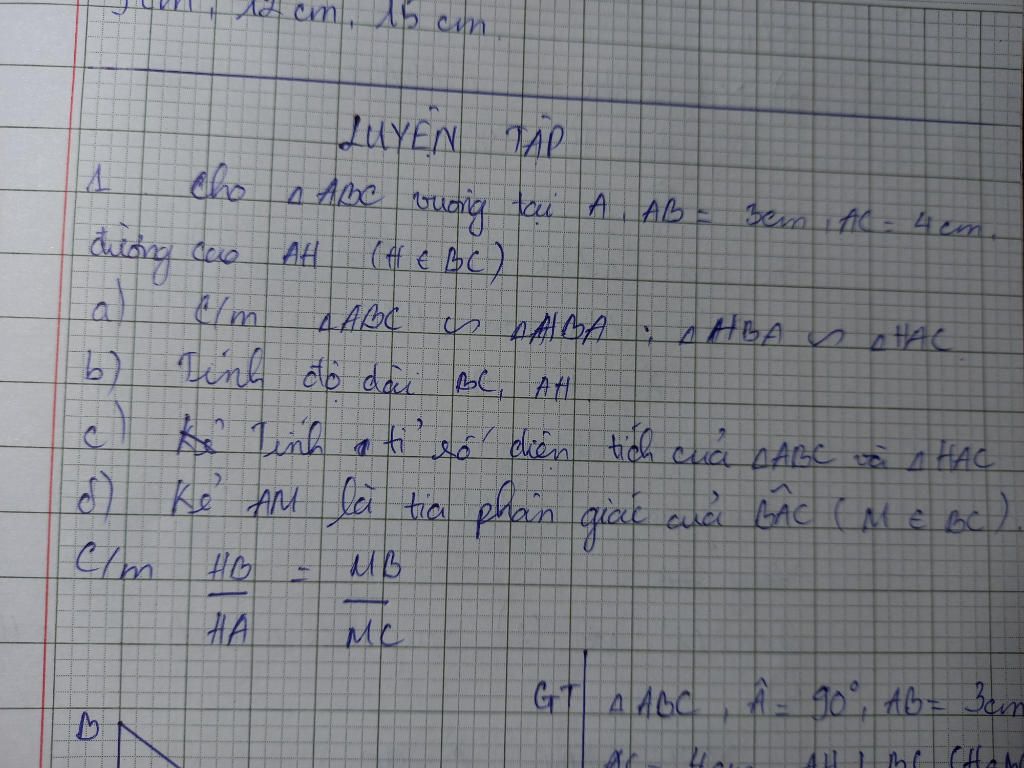 12 cm, 15 cm.
LUYỆN TẬP
1 Cho △ABC vuông tại A, AB = 3cm, AC = 4cm.
đường cao AH (H ∈ BC)
a) C/m △ABC ∽ △HBA ; △HBA ∽ △HAC
b) Tính độ dài BC, AH
c) Tính tỉ số diện tích của △ABC và △HAC
d) Kẻ AM là tia phân giác của BÂC (M ∈ BC).
C/m HB/HA = MB/MC
GT △ABC, Â = 90°, AB = 3cm
B
AC = 4cm, AH ⊥ BC (H∈BC